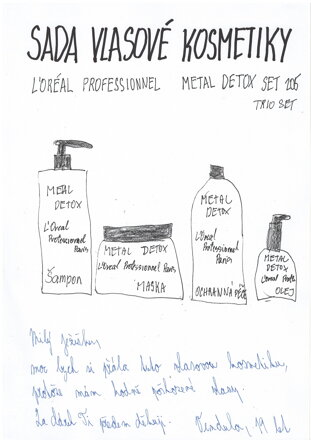 SADA VLASOVÉ KOSMETIKY
L'ORÉAL PROFESSIONNEL METAL DETOX SET 206
TRIO SET
METAL
DETOX
L'Oréal
Professionnel
Paris
Šampon
METAL DETOX
L'Oréal Professionnel Paris
MASKA
METAL
DETOX
L'Oréal
Professionnel
Paris
OCHRANNÁ PÉČE
METAL
DETOX
L'Oréal
OLEJ
Milý Ježíšku,
moc bych si přála tuto vlasovou kosmetiku,
protože mám hodně poškozené vlasy.
Za dárek Ti předem děkuji. Vendula, 19 let